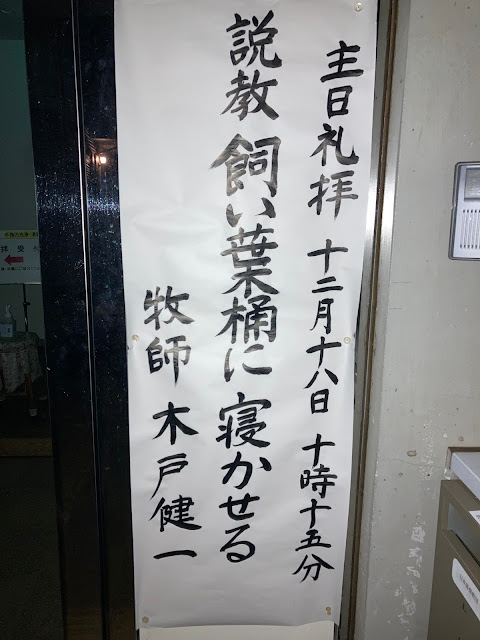 主日礼拝 十二月十八日 十時十五分
説教 飼い葉桶に 寝かせる
牧師 木戸健一